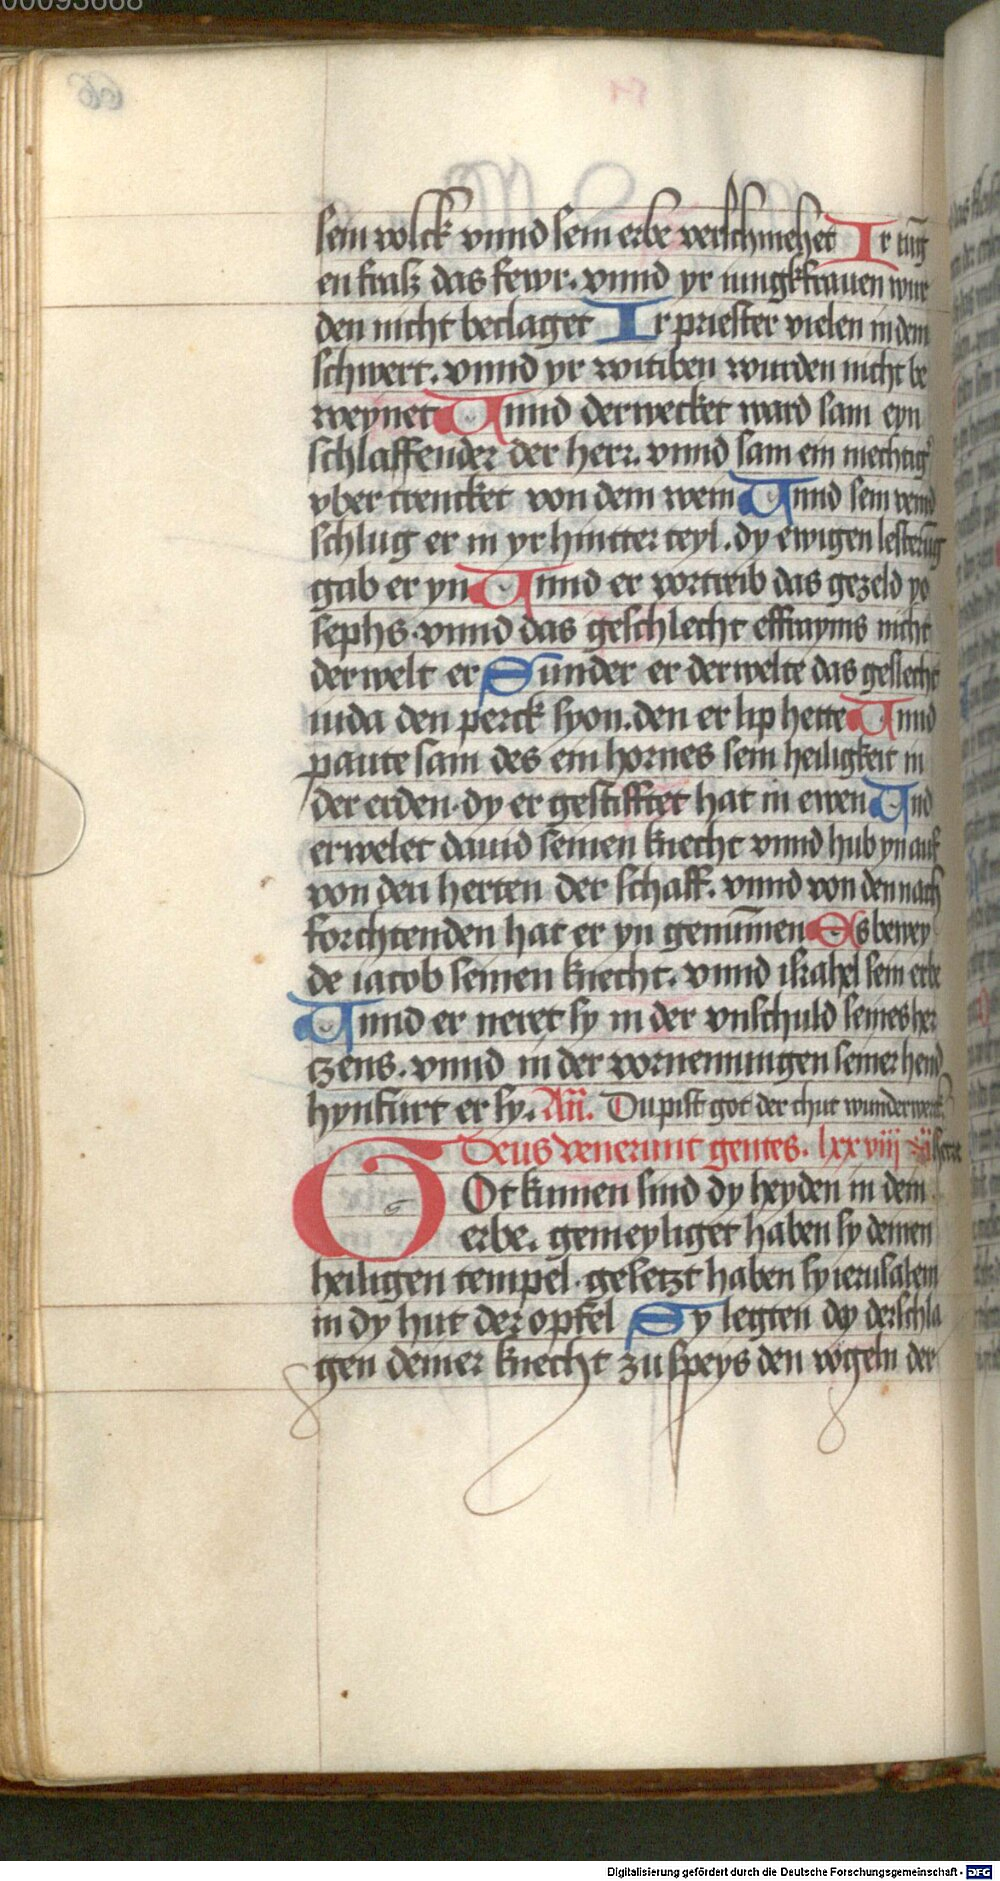 00093668
sein volck vnnd sein erbe verschmehet Ir iung
en frasz das fewr. vnnd yr iungkfrauen wur
den nicht beclaget Ir priester vielen in dem
schwert. vnnd yr witiben wurden nicht be
weynet Vnnd derwecket ward sam eyn
schlaffender der herr. vnnd sam ein mechtig
vber trencket von dem wein Vnnd sein veind
schlug er in yr hintter teyl. dy ewigen lesterung
gab er yn Vnnd er vortreib das gezeld yo
sephs. vnnd das geschlecht effrayms nicht
derwelt er Sunder er derwelte das geslecht
iuda den perck syon. den er lip hette Vnnd
paute sam des ein hornes sein heiligkeit in
der erden. dy er gestifftet hat in ewen Vnd
erwelet dauid seinen knecht vnnd hub yn auf
von den herten der schaff. vnnd von den nach
forchtenden hat er yn genummen Es bewey
de iacob seinen knecht. vnnd israhel sein erbe
Vnnd er neret sy in der vnschuld seines her
tzens. vnnd in der vornemungen seiner hend
hynfurt er sy. An. Du pist got der thut wunderwerk
Deus venerunt gentes. lxxviij herre
GOt kumen sind dy heyden in dein
erbe. gemeyliget haben sy deinen
heiligen tempel. gesetzt haben sy ierusalem
in dy hut der opfel Sy legten dy derschla
gen deiner knecht zu speys den vogeln der
Digitalisierung gefördert durch die Deutsche Forschungsgemeinschaft - DFG